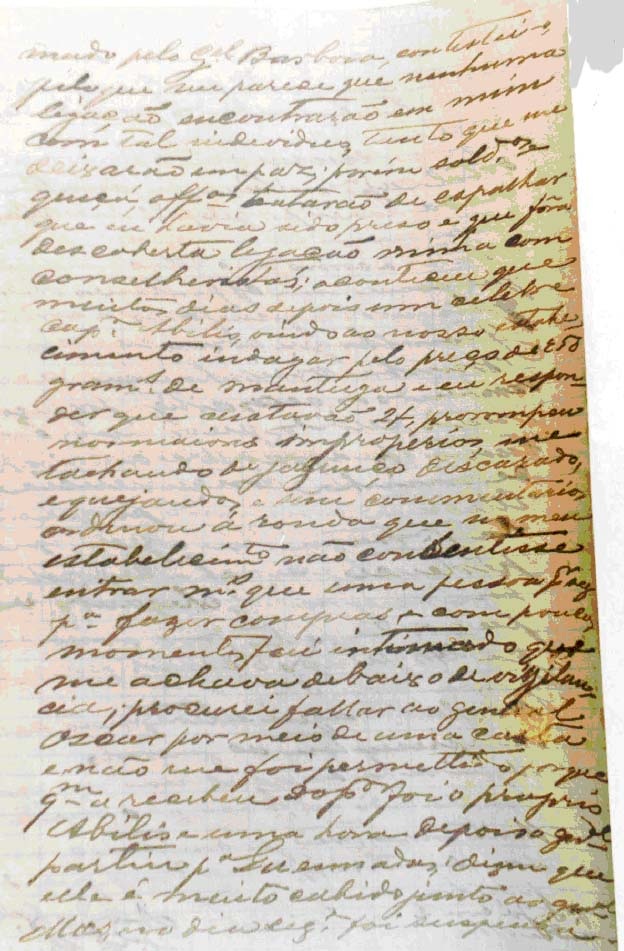 mado pelo Gal Barbosa, contestei-o,
pelo que me parece que nenhuma
ligação encontrarão em mim
com tal individuo, tanto que me
deixarão em paz; porém sold.os e
offes tratarão de espalhar
que eu havia sido preso e que fôra
descoberta ligação minha com
conselheiristas; aconteceu que
muitos dias depois um celebre
cap.m Abilio, vindo ao nosso estabe
cimento indagar pelo preço de 250
gram.s de manteiga e eu respon
der que custavão 2$, prorompeu
nos maiores improperios, me
tachando de jagunço disfarçado,
e quejandos, e sem commentarios
ordenou á ronda que no meu
estabelecimto não consentisse
entrar m.s que uma pessoa por vez
p.a fazer compras e com poucos
momentos fui intimado que
me achava debaixo de vigilan
cia; procurei fallar ao general
Oscar por meio de uma carta
e não me foi permettido, porque
q.m a recebeu foi o proprio
Abilio e uma hora depois o genal
partiu p.a Queimadas; dizem que
elle é muito cabido junto ao genal
Mas, no dia seg.e foi suspensa